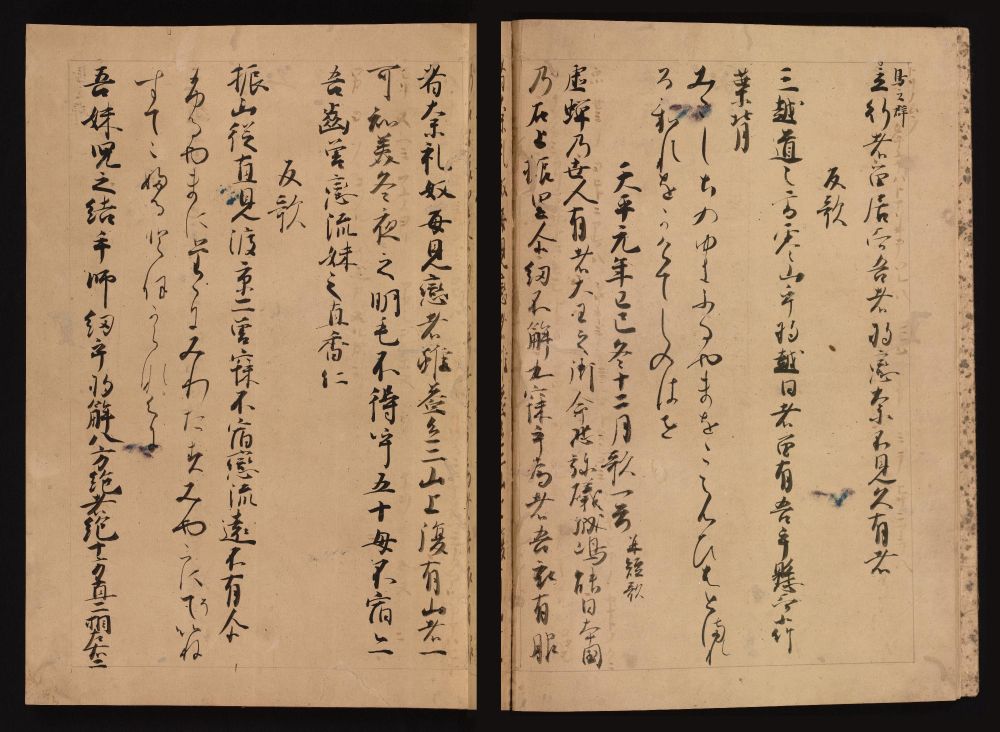 鳥之群
立行者留居而吾者将戀奈不見久有者
反歌
三越道之雪零山乎将越日者留有吾乎懸而小竹
葉背
みこしちのゆきふるやまをこえむひはとまれ
るわれをかけてしのはせ
天平元年己巳冬十二月歌一首 并短歌
虚蝉乃世人有者大王之御命恐弥礒城嶋能日本國
乃石上振里尓紐不解丸寐乎為者吾衣有服
者奈礼奴毎見戀者雖益色二山上復有山者一
可知美冬夜之明毛不得呼五十母不宿二
吾齒曽戀流妹之直香仁
反歌
振山従直見渡京二曽寐不宿戀流遠不有尓
ふるやまにたゝにみわたすみやこにそいね
すてこふるとほからなくに
吾妹兒之結手師紐乎将解八方絶者絶十方直二相左右二